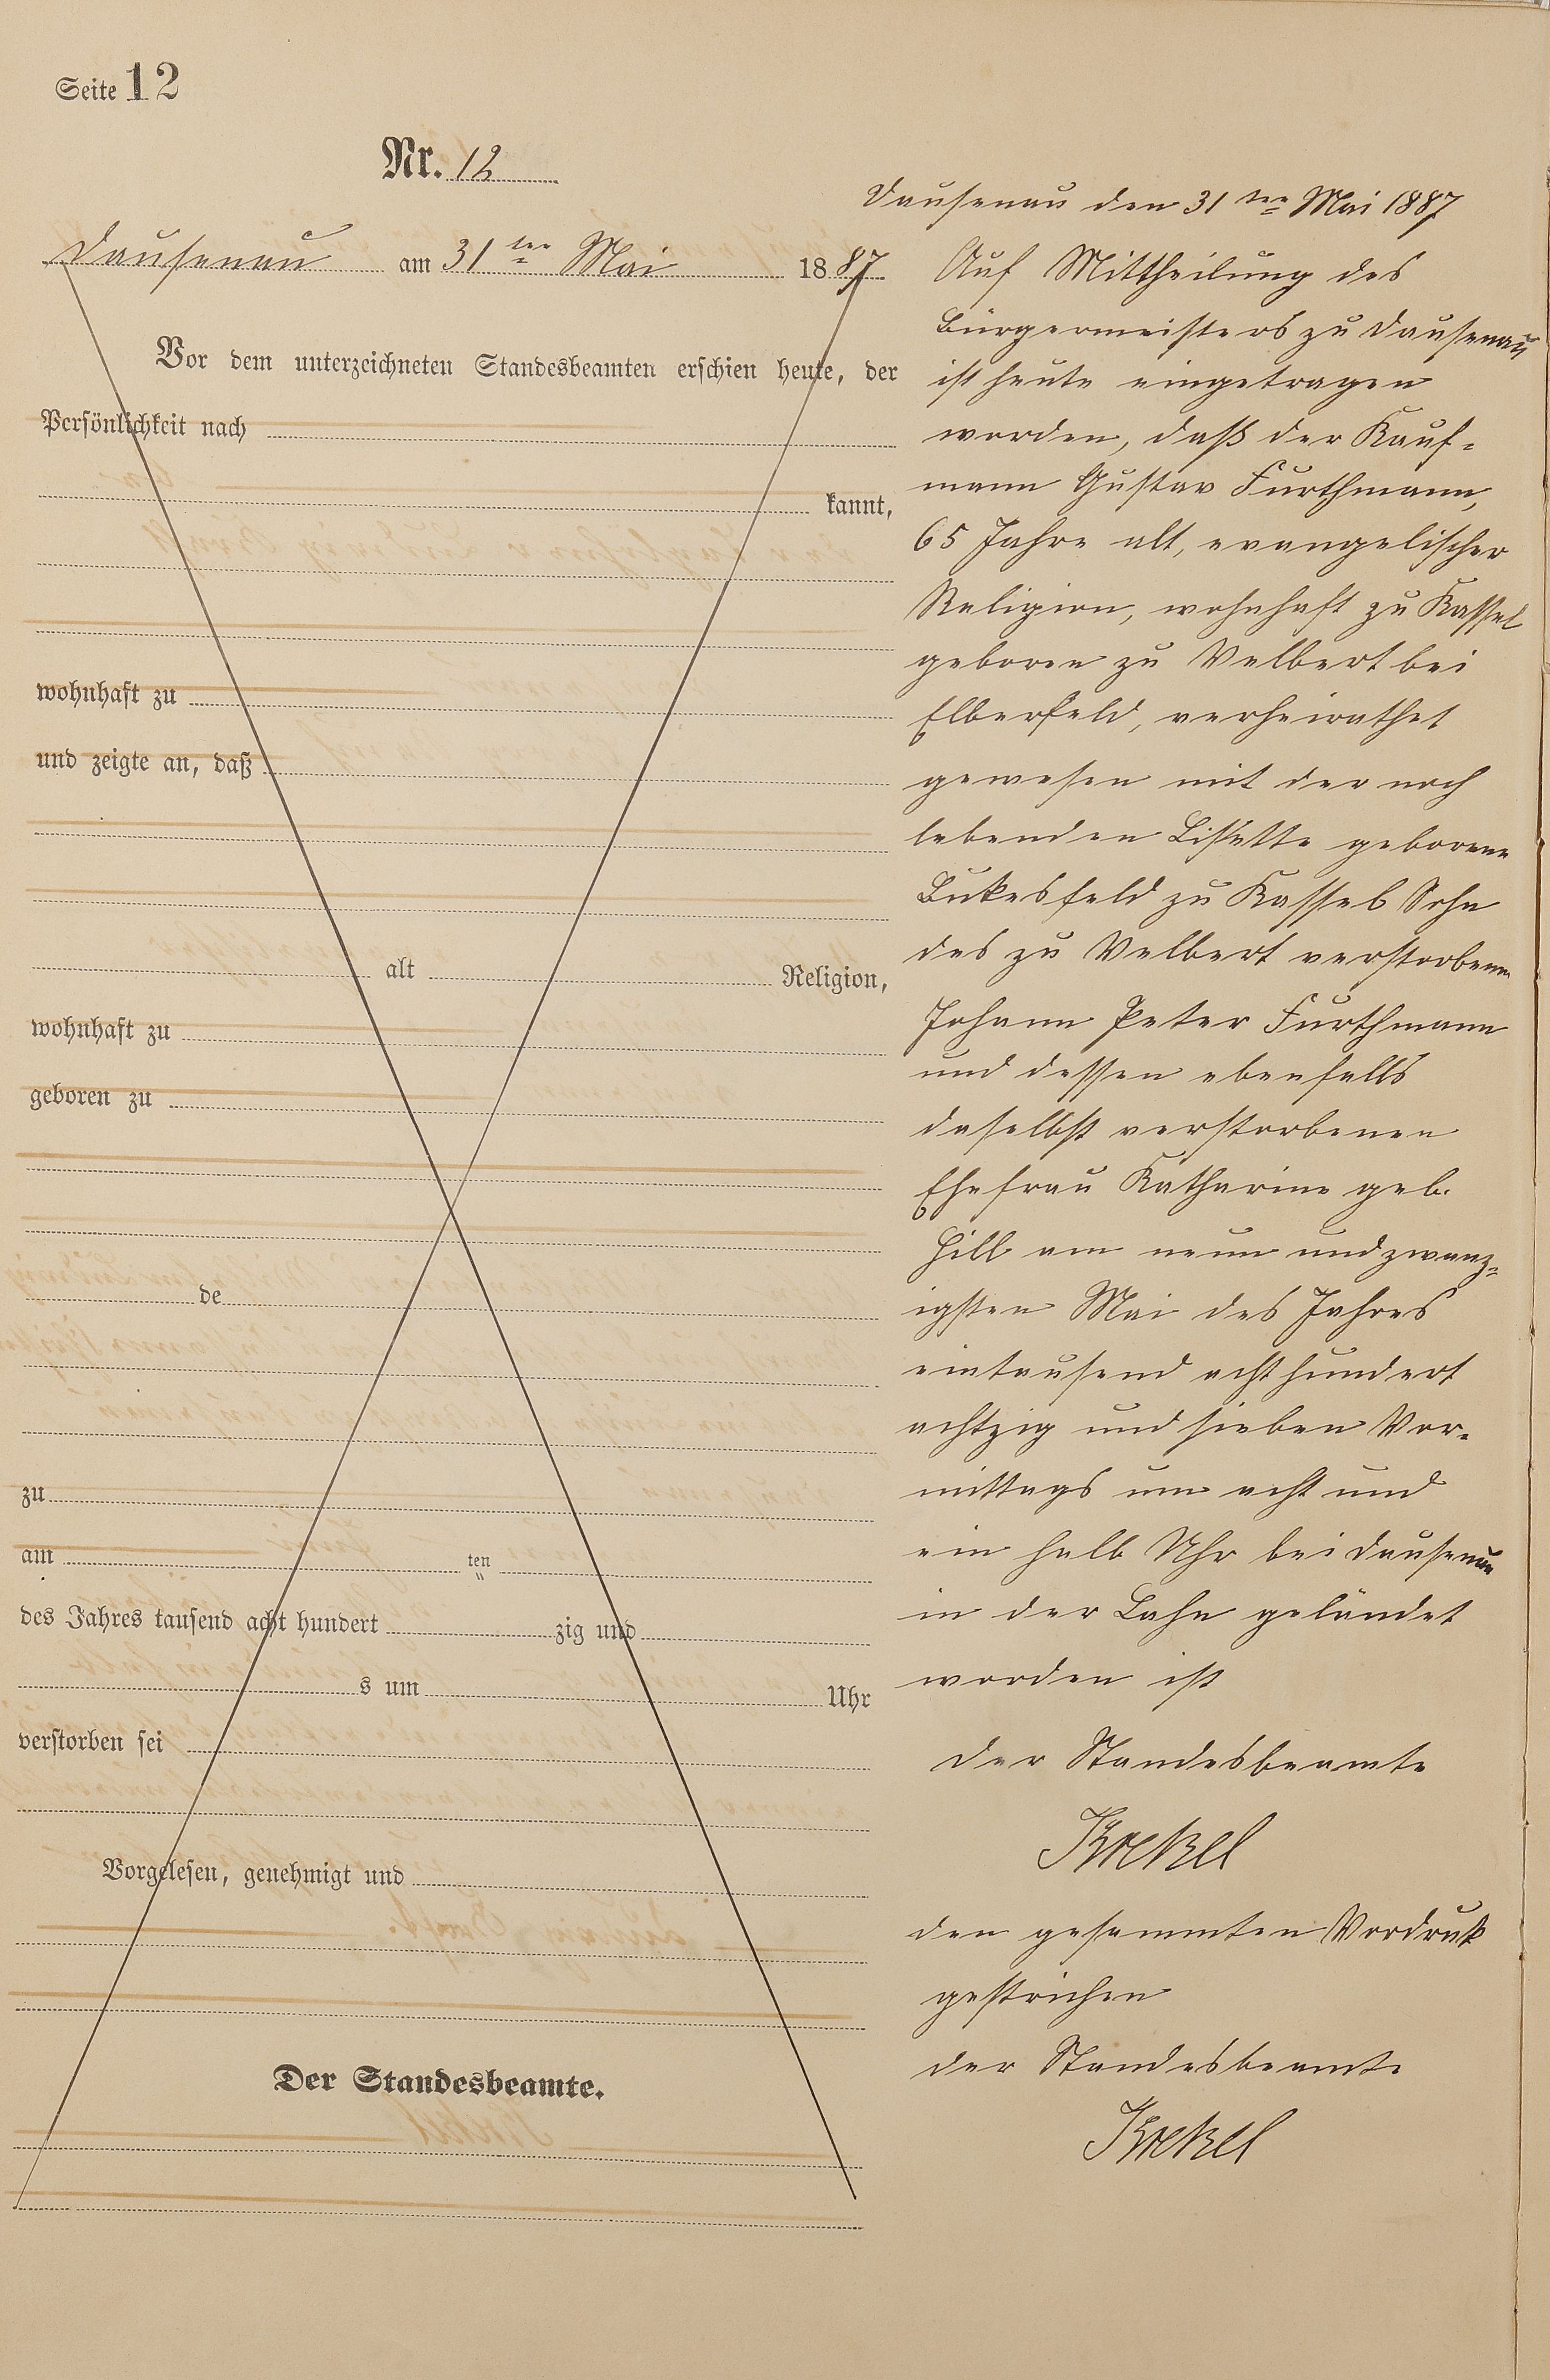 Seite 12
Nr. 12
Dausenau am 31ten Mai 1887
Vor dem unterzeichneten Standesbeamten erschien heute, der
Persönlichkeit nach
kannt,
wohnhaft zu
und zeigte an, daß
alt Religion,
wohnhaft zu
geboren zu
de
zu
am ten
des Jahres tausend acht hundert zig und
s um Uhr
verstorben sei
Vorgelesen, genehmigt und
Der Standesbeamte.
Dausenau den 31ten Mai 1887
Auf Mittheilung des
Bürgermeisters zu Dausenau
ist heute eingetragen
worden, daß der Kauf-
mann Gustav Furthmann,
65 Jahre alt, evangelischer
Religion, wohnhaft zu Kassel
geboren zu Velbert bei
Elberfeld, verheirathet
gewesen mit der noch
lebenden Lisette geborene
Lukesfeld zu Kassel Sohn
des zu Velbert verstorbenen
Johann Peter Furthmann
und dessen ebenfalls
daselbst verstorbenen
Ehefrau Katharine geb.
Hill am neun und zwanz-
igsten Mai des Jahres
eintausend acht hundert
achtzig und sieben Vor-
mittags um acht und
ein halb Uhr bei Dausenau
in der Lahn geländet
worden ist
Der Standesbeamte
Krekel
den gesammten Vordruk
gestrichen
der Standesbeamte
Krekel